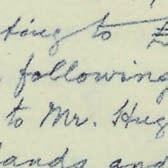 ting to £
following
to Mr. Hug
lands and